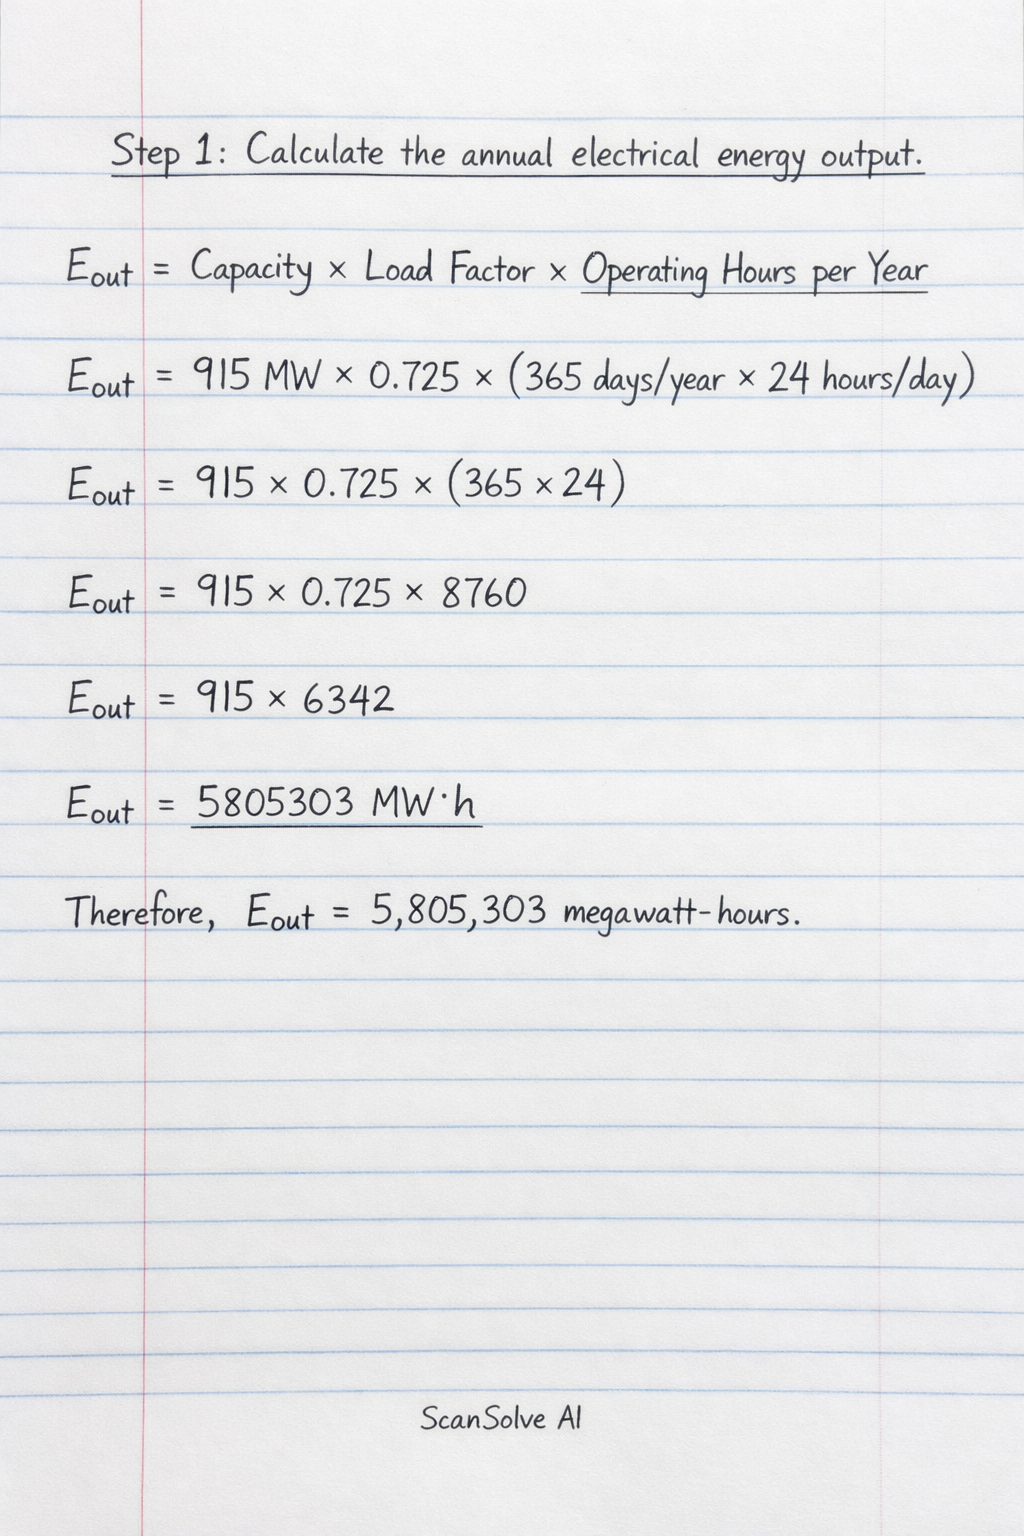 Step 1: Calculate the annual electrical energy output.
Eout = Capacity × Load Factor × Operating Hours per Year
Eout = 915 MW × 0.725 × (365 days/year × 24 hours/day)
Eout = 915 × 0.725 × (365 × 24)
Eout = 915 × 0.725 × 8760
Eout = 915 × 6342
Eout = 5805303 MW·h
Therefore, Eout = 5,805,303 megawatt-hours.
ScanSolve AI